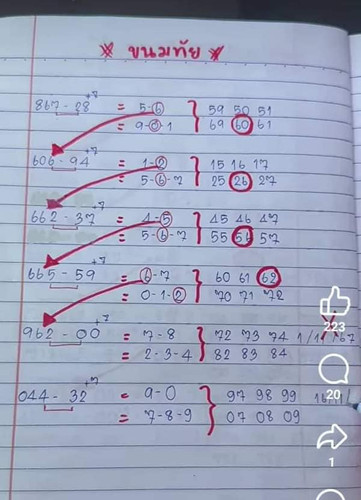 ขนมทัย
+7
867-28 = 5-6 59 50 51
= 9-0-1 69 60 61
+7
606-94 = 1-2 15 16 17
= 5-6-7 25 26 27
+7
662-37 = 4-5 45 46 47
= 5-6-7 55 56 57
+7
665-59 = 6-7 60 61 62
= 0-1-2 70 71 72
+7
962-00 = 7-8 72 73 74
= 2-3-4 82 83 84
+7
044-32 = 9-0 97 98 99
= 7-8-9 07 08 09
223
20
1